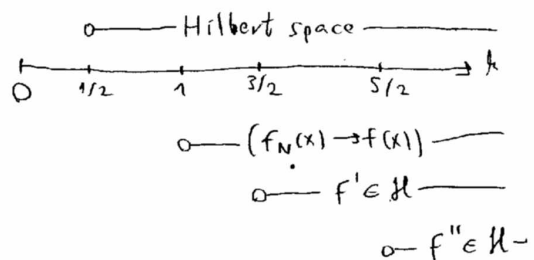 Hilbert space
0 1/2 1 3/2 5/2 k
(f_N(x) → f(x))
f' ∈ H
f'' ∈ H